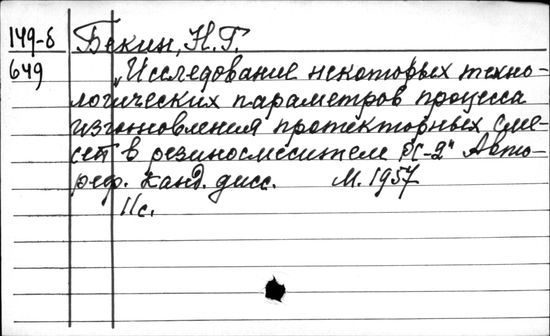 149-б Бекин, Н.Г.
649 „Исследование некоторых техно-
логических параметров процесса
изготовления протекторных сме-
сей в резиносмесителе РС-2" Авто-
реф. канд. дисс. М. 1957
11с.